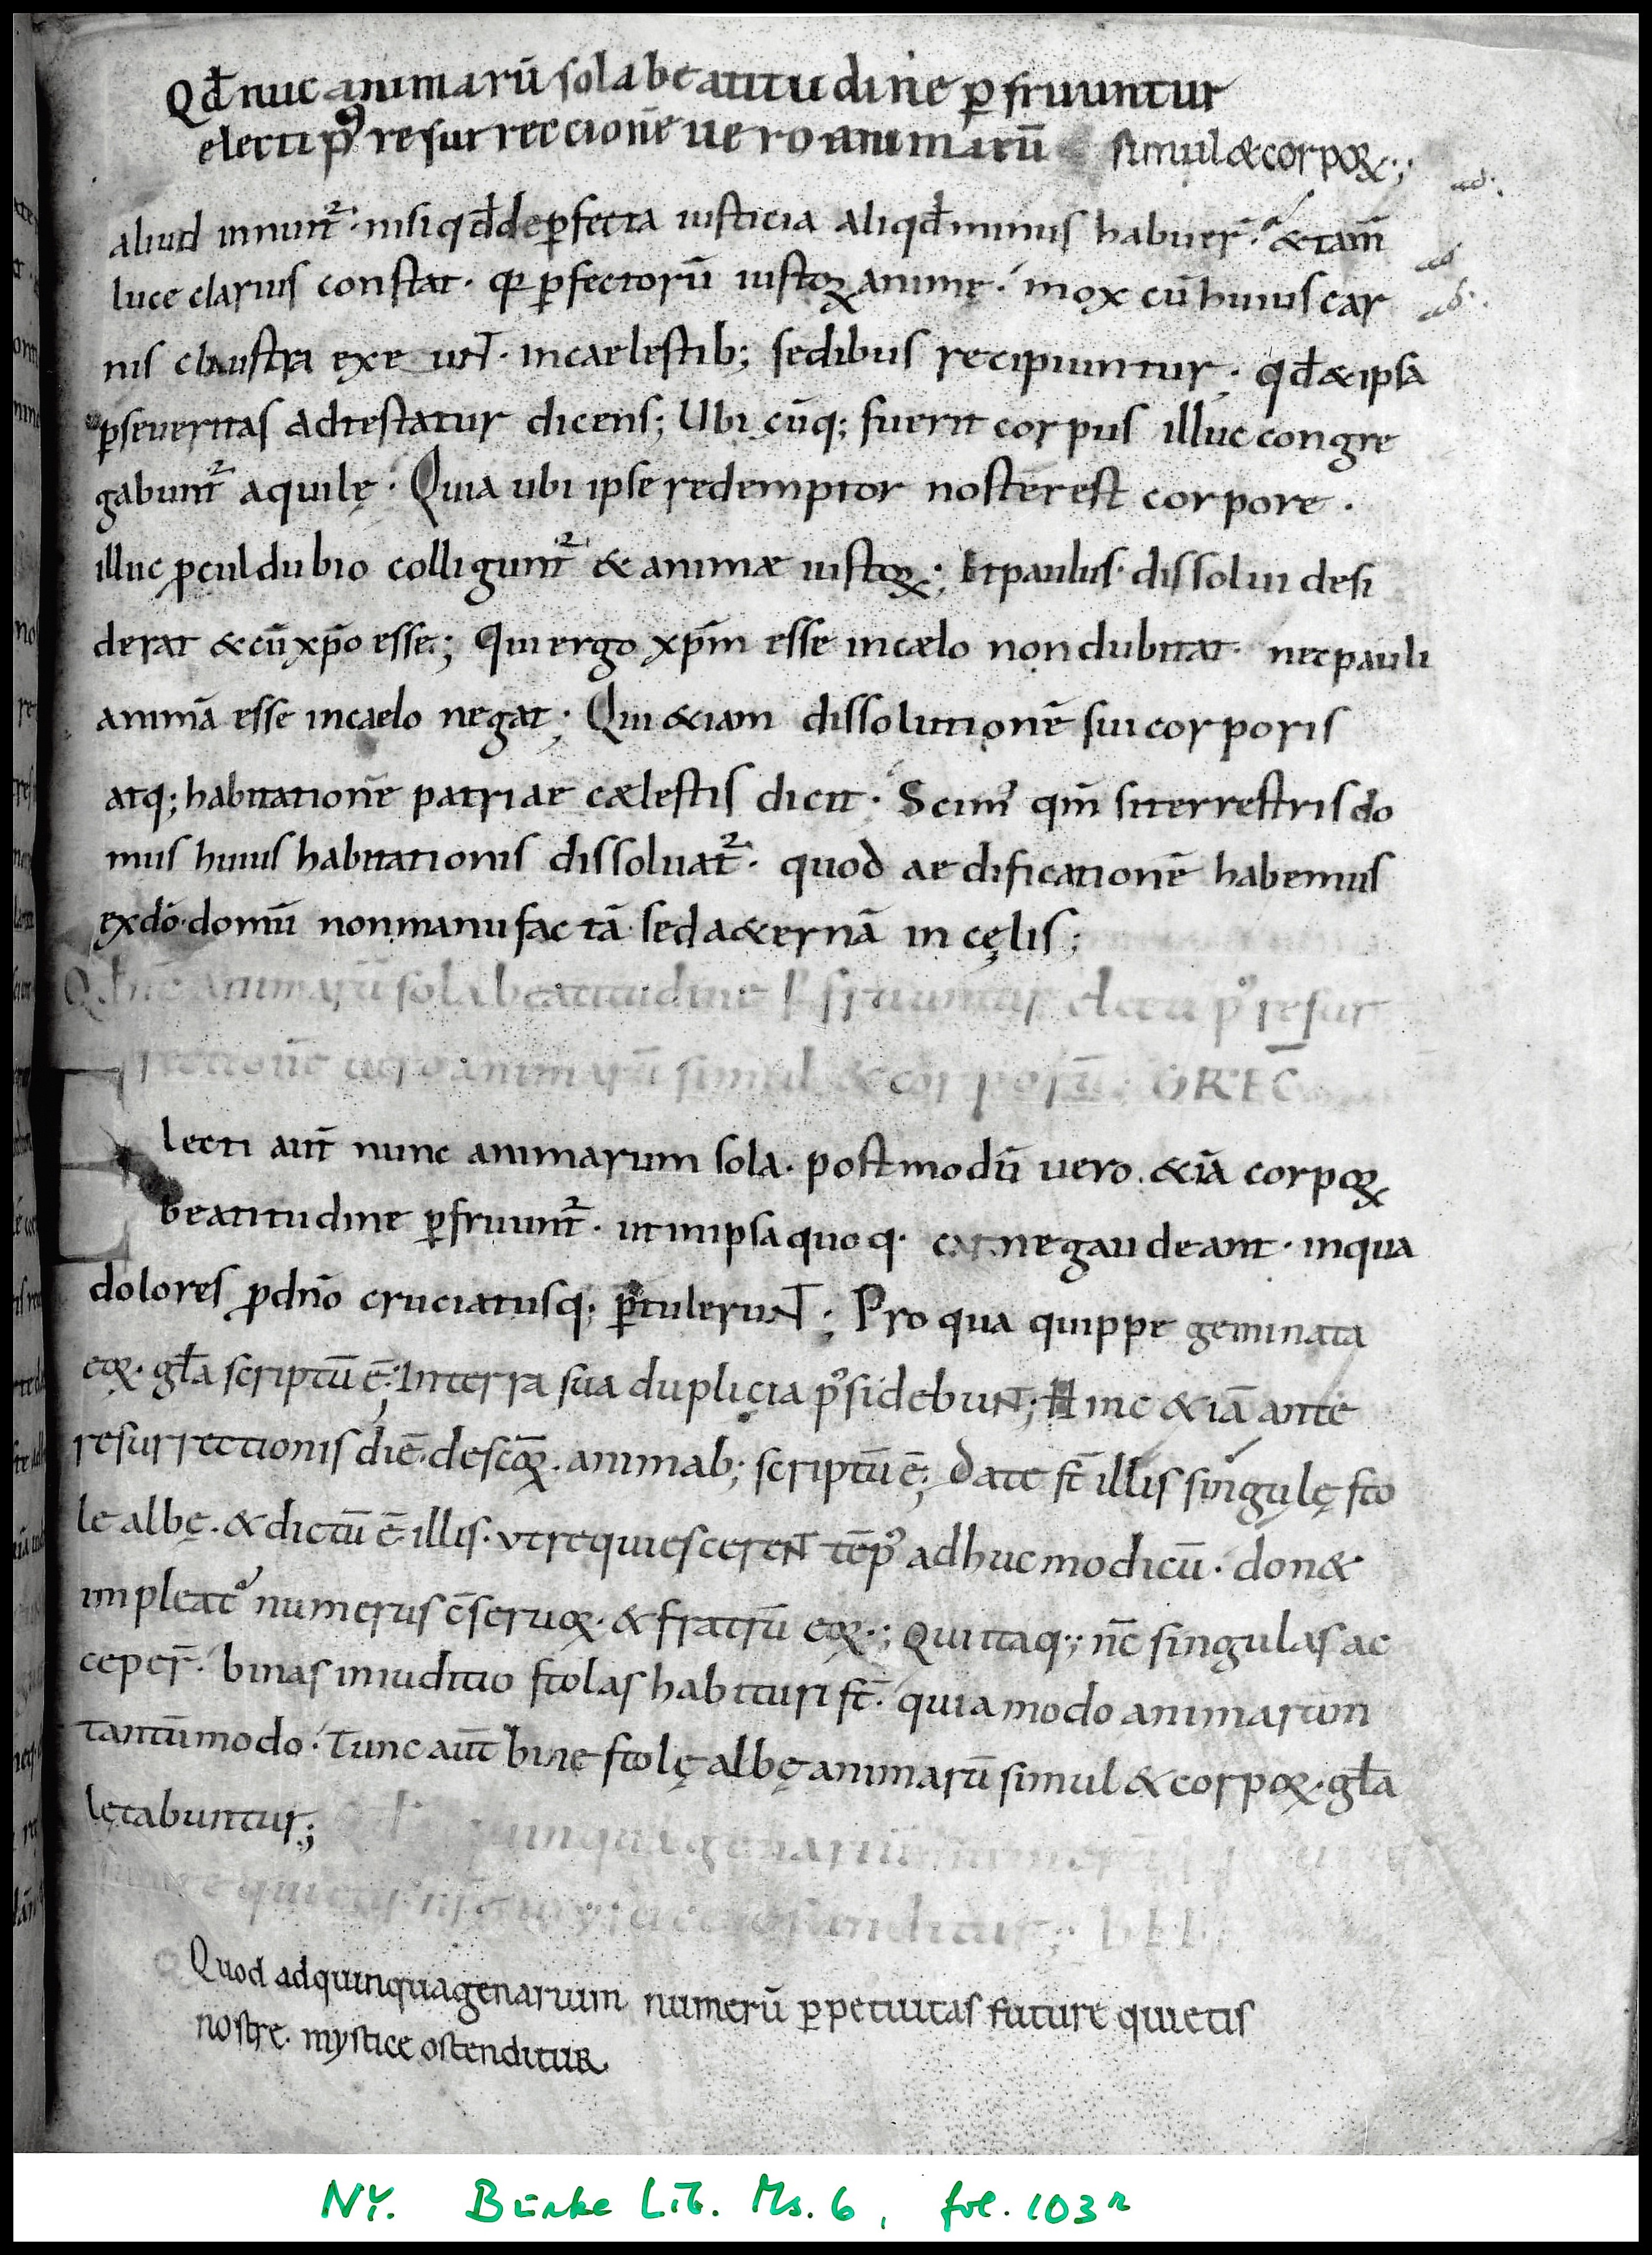 Qđ nuc animarū sola beatitudine ꝑfruuntur
electi pꝰ resurreccionē uero animarū simul & corpoꝝ·;
aliud innunt᷑· nisi qđ de ꝑfecta iusticia aliqđ minus habuer̄· & tam̄
luce clarius constat· qꝫ ꝑfectorū iustoꝝ animę· mox cū huius car
nis claustra exeunt· in caelestib; sedibus recipiuntur· qđ & ipsa
ꝑse ueritas adtestatur dicens; Ubicūq; fuerit corpus illuc congre
gabunt᷑ aquilę· Quia ubi ipse redemptor noster est corpore·
illuc ꝓculdubio colligunt᷑ & animæ iustoꝝ; Et paulus· dissolui desi
derat & cū xp̄o esse; Qui ergo xp̄m esse in cælo non dubitat· nec pauli
animā esse in caelo negat; Qui & iam dissolutionē sui corporis
atq; habitationē patriae cælestis dicit· Scimꝰ qm̄ si terrestris do
mus huius habitationis dissoluat᷑· quod aedificationē habemus
ex dō· domū non manu factā sed a&ernā in cęlis;
Qđ nc̄ animarū sola beatitudine ꝑfruuntur electi pꝰ resur
rectionē uero animarū simul & corporū; GREG̅
Electi aut̄ nunc animarum sola· postmodū uero· & iā corpoꝝ
beatitudine ꝑfruunt᷑· ut in ipsa quoq· carne gaudeant· in qua
dolores ꝓ dn̄o cruciatusq; ꝑtulerunt; Pro qua quippe geminata
eoꝝ· gła scriptū ē; In terra sua duplicia pꝰsidebunt; Hinc & iā ante
resurrectionis diē· de sc̄oꝝ· animab; scriptū ē; Date st̄ illis singulę sto
le albę· & dictū ē illis· ut requiescerent tēpꝰ adhuc modicū· don&
impleatꝰ numerus c̄seruoꝝ· & fratrū eoꝝ·; Qui itaq·; nc̄ singulas ac
ceper̄· binas in iuditio stolas habituri st̄· quia modo animarum
tantūmodo· Tunc aut̄ bine stolę albę animarū simul & corpoꝝ· gła
lętabuntur;
Quod ad quinquagenarium numerū ꝑpetuitas future quietis
nostre· mystice ostenditur
NY. Burke Lib. Ms. 6, fol. 103r